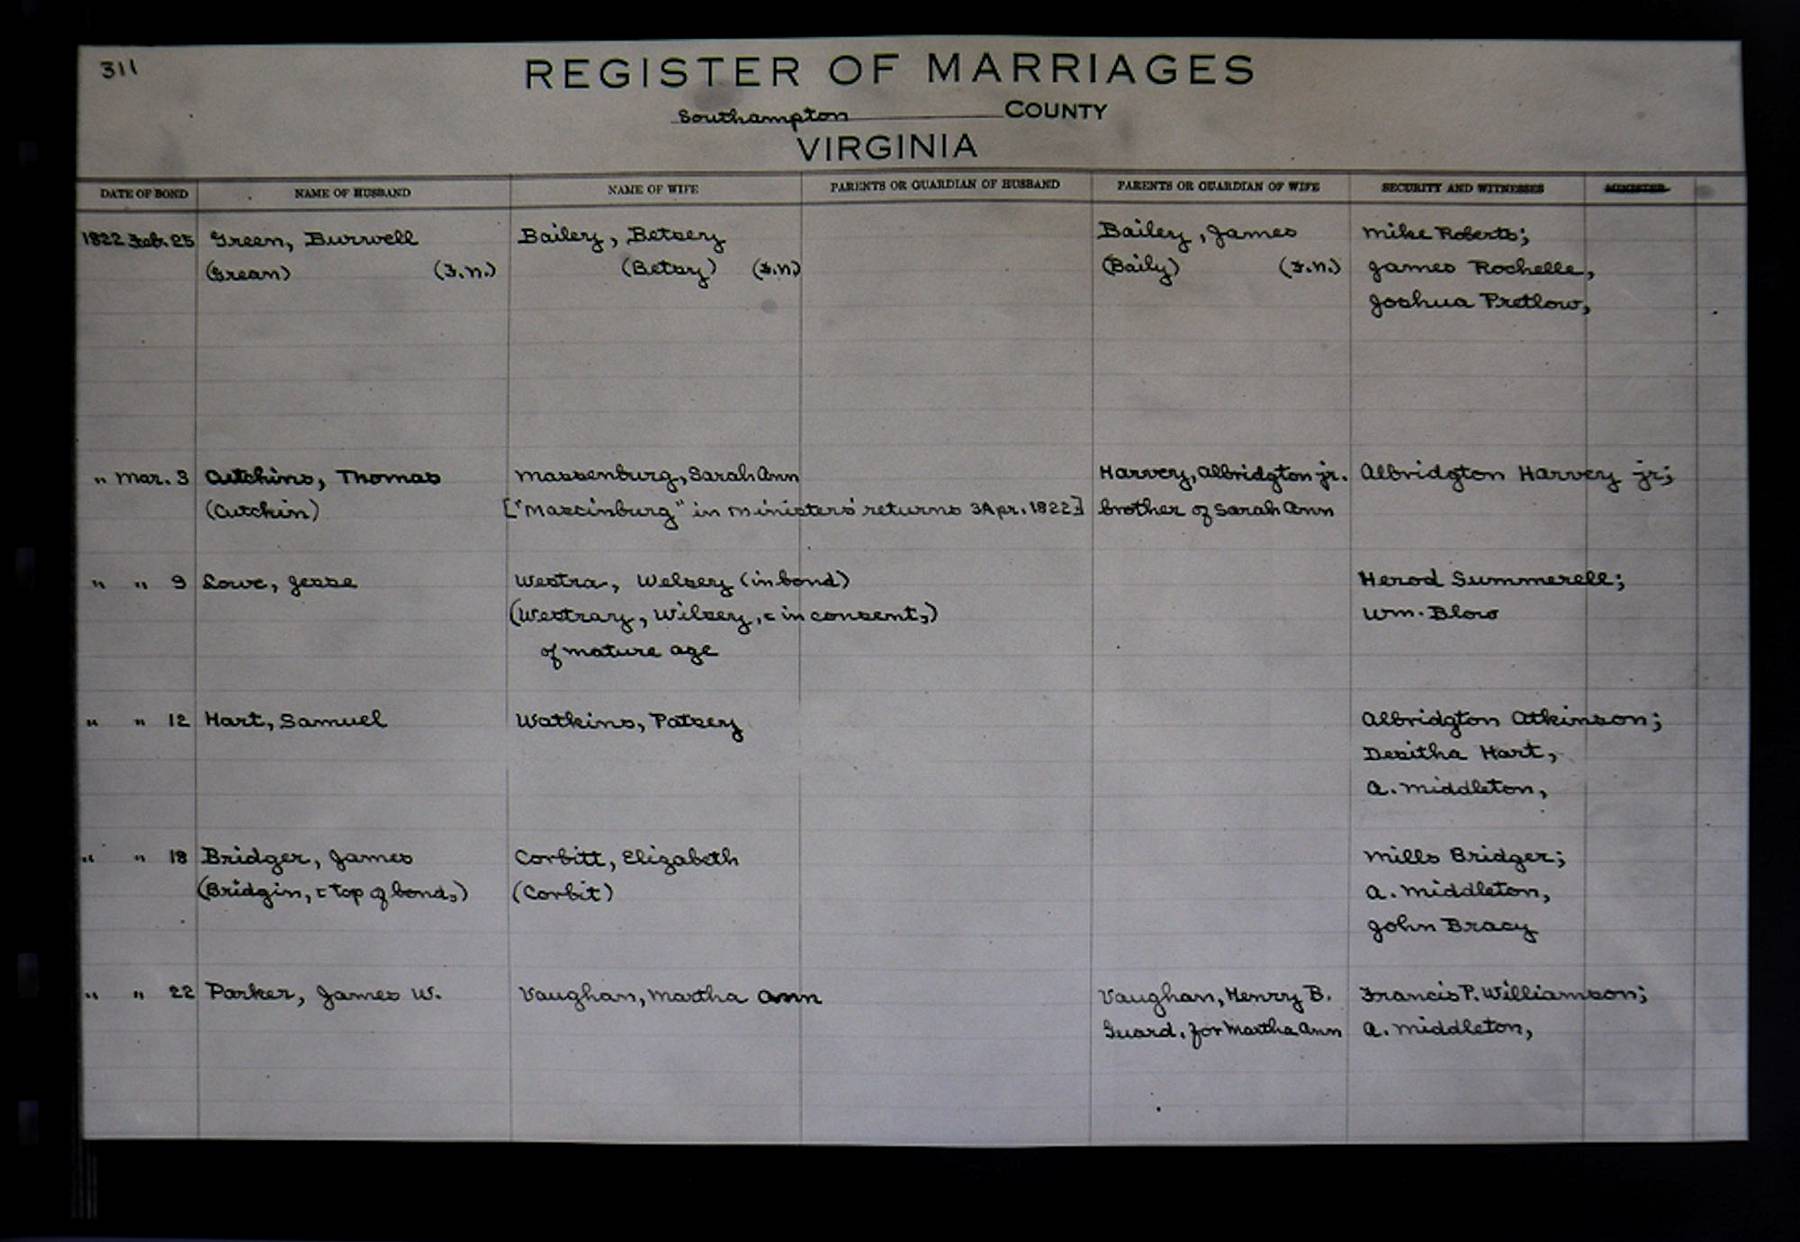 311
REGISTER OF MARRIAGES
Southampton COUNTY
VIRGINIA
DATE OF BOND NAME OF HUSBAND NAME OF WIFE PARENTS OR GUARDIAN OF HUSBAND PARENTS OR GUARDIAN OF WIFE SECURITY AND WITNESSES MINISTER
1822 Feb. 25 Green, Burwell Bailey, Betsey Bailey, James Mike Roberts;
(Grean) (F.N.) (Betsy) (F.N.) (Baily) (F.N.) James Rochelle,
Joshua Pretlow,
" Mar. 3 Cutchins, Thomas Massenburg, Sarah Ann Harvey, Albridgton jr. Albridgton Harvey jr;
(Cutchin) ["Mascinburg" in ministers' returns 3 Apr. 1822] brother of Sarah Ann
" " 9 Lowe, Jesse Westra, Welsey (in bond) Herod Summerell;
(Westray, Wilsey, c in consent,) Wm. Blow
of mature age
" " 12 Hart, Samuel Watkins, Patsey Albridgton Atkinson;
Desitha Hart,
A. Middleton,
" " 18 Bridger, James Corbitt, Elizabeth Mills Bridger;
(Bridgin, c top of bond,) (Corbit) A. Middleton,
John Bracy
" " 22 Parker, James W. Vaughan, Martha Ann Vaughan, Henry B. Francis P. Williamson;
Guard. for Martha Ann A. Middleton,